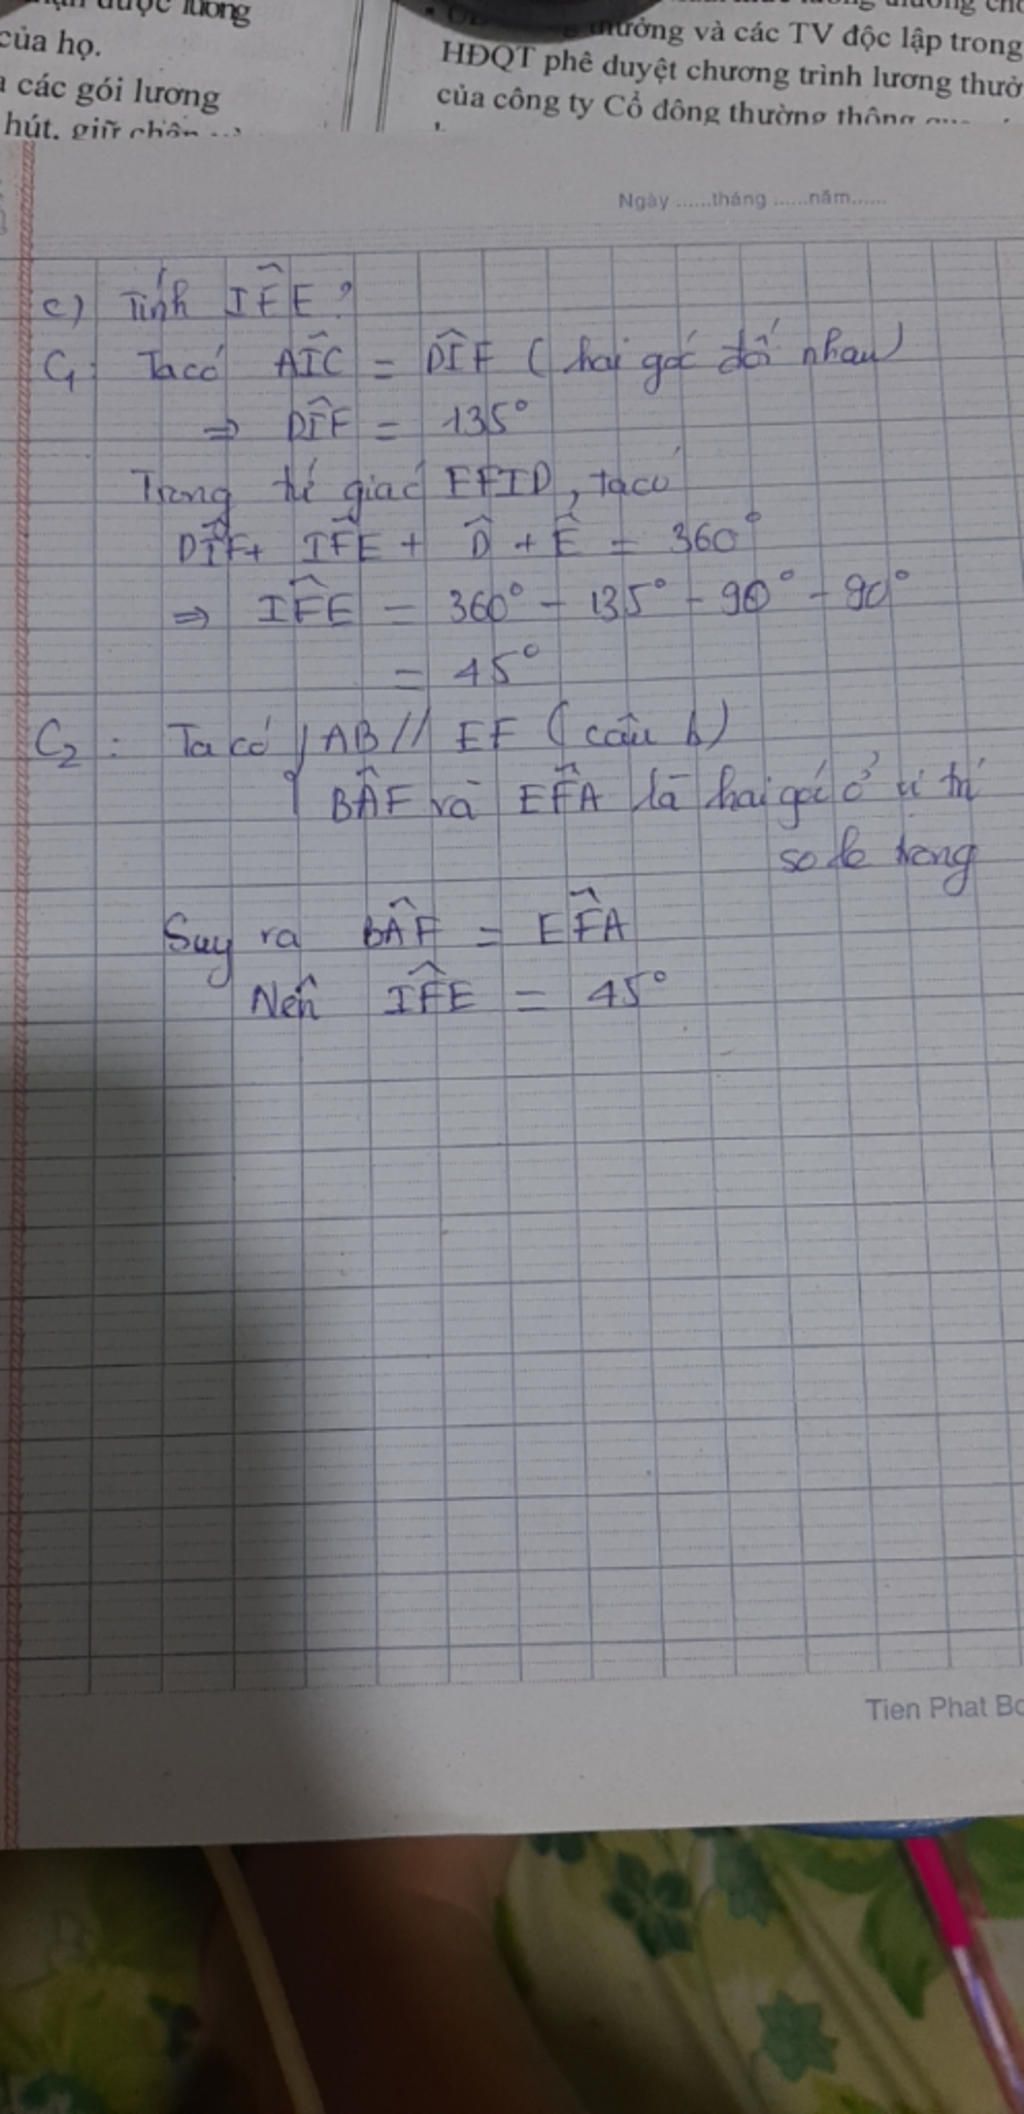 lương
của họ.
các gói lương
hút, giữ chân
thưởng và các TV độc lập trong
HĐQT phê duyệt chương trình lương thưở
của công ty Cổ đông thường thông
Ngày ......tháng ......năm......
c) Tính IF̂E ?
C₁: Ta có AÎC = DÎF ( hai góc đối nhau)
⇒ DÎF = 135°
Trong tứ giác EFID, ta có
DÎF + IF̂E + D̂ + Ê = 360°
⇒ IF̂E = 360° - 135° - 90° - 90°
= 45°
C₂ : Ta có { AB // EF ( câu b)
BÂF và EF̂A là hai góc ở vị trí
so le trong
Suy ra BÂF = EF̂A
Nên IF̂E = 45°
Tien Phat Bo